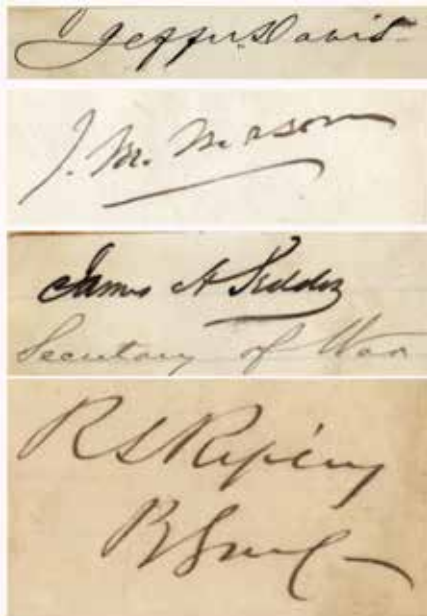 Jeffer Davis
J. M. Mason
James A Seddon
Secretary of War
R S Ripley
B Genl